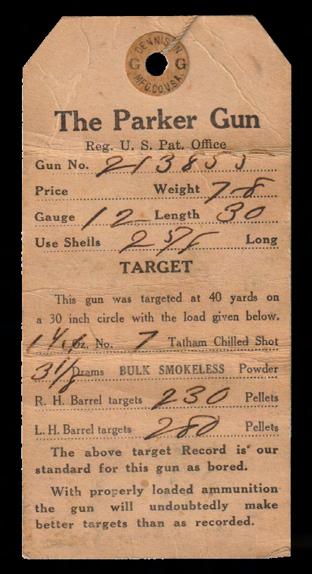 DENNISON
G G
MFG.CO.U.S.A.
The Parker Gun
Reg. U. S. Pat. Office
Gun No. 213855
Price Weight 7-8
Gauge 12 Length 30
Use Shells Long
TARGET
This gun was targeted at 40 yards on
a 30 inch circle with the load given below.
oz. No. 7 Tatham Chilled Shot
3 1/8 Drams BULK SMOKELESS Powder
R. H. Barrel targets 230 Pellets
L. H. Barrel targets 280 Pellets
The above target Record is our
standard for this gun as bored.
With properly loaded ammunition
the gun will undoubtedly make
better targets than as recorded.